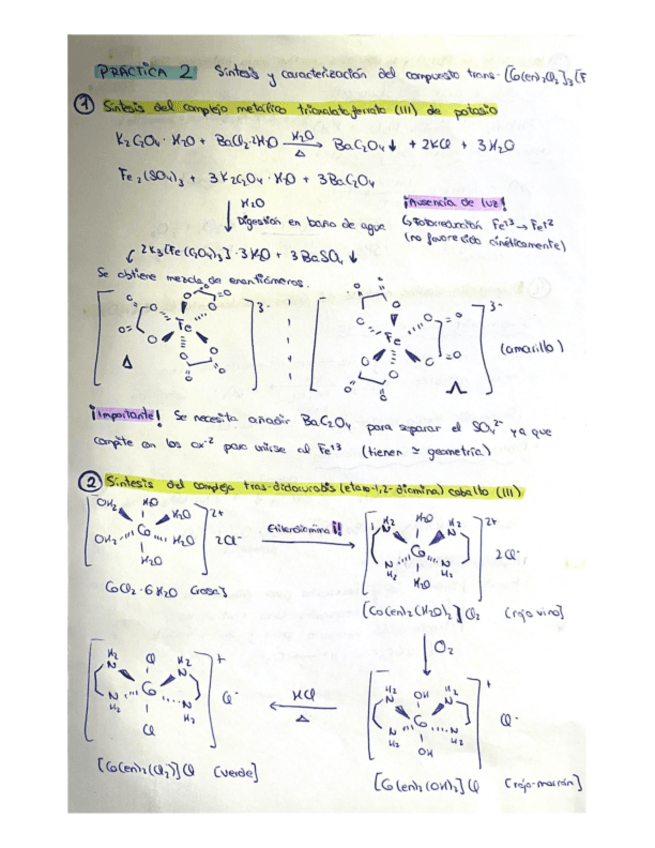 PRÁCTICA 2 Síntesis y caracterización del compuesto trans-[Co(en)2Cl2]3[F
① Síntesis del complejo metálico trioxalatoferrato (III) de potasio
K2C2O4 · H2O + BaCl2·2H2O H2O BaC2O4↓ + 2KCl + 3H2O
Δ
Fe2(SO4)3 + 3K2C2O4·H2O + 3BaC2O4
H2O
Digestión en baño de agua
¡Ausencia de luz!
↳ Fotorreducción Fe+3 → Fe+2
(no favorecido cinéticamente)
2K3[Fe(C2O4)3]·3H2O + 3BaSO4↓
Se obtiene mezcla de enantiómeros.
Fe 3-
Δ
Fe 3-
Λ
(amarillo)
¡Importante! Se necesita añadir BaC2O4 para separar el SO4 2- ya que
compite con los ox-2 para unirse al Fe+3 (tienen ≃ geometría)
② Síntesis del complejo tras-diclorurobis(etano-1,2-diamina) cobalto (III)
OH2 H2O H2O 2+
Co
OH2 H2O 2Cl-
H2O
CoCl2·6H2O (rosa]
Etilendiamina
H2 H2O H2 2+
N N
Co 2Cl-
N N
H2 H2O H2
[Co(en)2(H2O)2]Cl2 (rojo vino]
O2
H2 OH H2 +
N N
Co Cl-
N N
H2 OH H2
[Co(en)2(OH)2]Cl (rojo-marrón]
HCl
Δ
H2 Cl H2 +
N N
Co Cl-
N N
H2 Cl H2
[Co(en)2(Cl2)]Cl (verde]